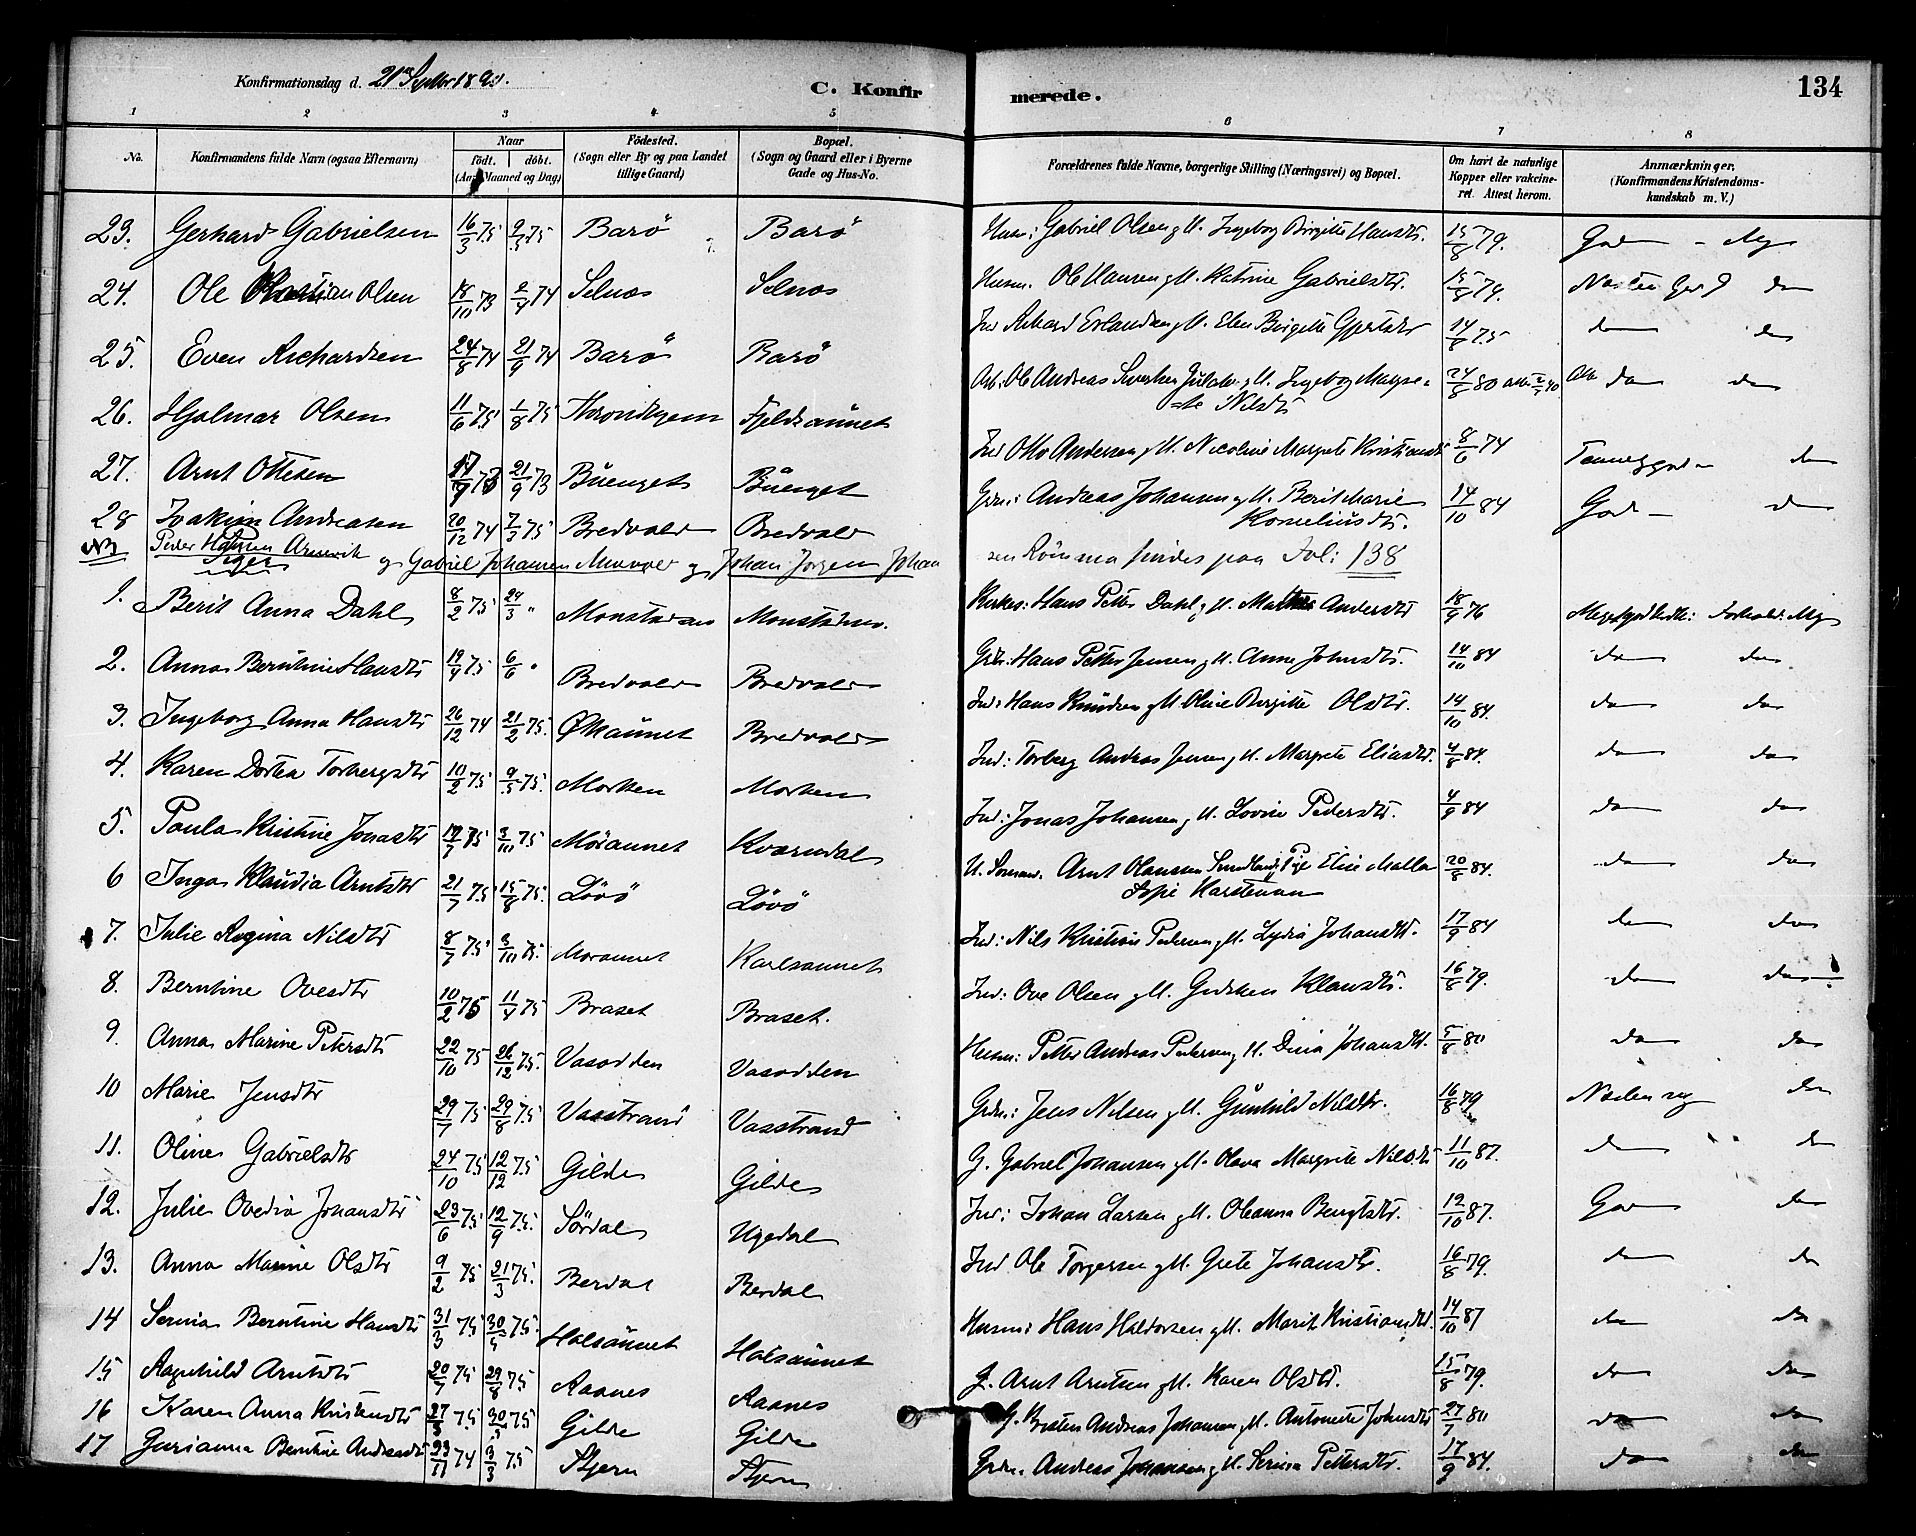 Konfirmationsdag d. 21 Septbr 1890.
C. Konfirmerede.
134
1 2 3 4 5 6 7 8
No. Konfirmandens fulde Navn (ogsaa Efternavn) Naar født. døbt. (Aar, Maaned og Dag) Fødested. (Sogn eller By og paa Landet tillige Gaard) Bopæl. (Sogn og Gaard eller i Byerne Gade og Hus-No. Forældrenes fulde Navne, borgerlige Stilling (Næringsvei) og Bopæl. Om havt de naturlige Kopper eller vakcineret. Attest herom. Anmærkninger. (Konfirmandens Kristendomskundskab m. V.)
23. Gerhard Gabrielsen 16/3 75 2/5 75 Barö Barö Husm: Gabriel Olsen g M. Ingeborg Birgitte Hansdtr. 15/8 79. God - Mg
24. Ole Olsen 18/10 73 2/4 74 Selnæs Selnæs Husm. Ole Hansen g M. Katrine Gabrielsdtr. 15/8 74. Næsten God do
25. Even Richardsen 24/8 74 21/9 74 Barö Barö Ind Rikard Erlandsen g M. Elen Birgitte 14/8 75 do do
26. Hjalmar Olsen 11/6 75 1/8 75 Throndhjem Fjeldsaunet Arb: Ole Andreas g M. Ingeborg Margrete Nilsdtr 24/8 80 do do
27. Arnt Ottesen 17/9 73 21/9 73 Buenget Buenget Ind Otto Andersen g M. Nicoline Margrete Kristiansdtr 8/6 74 Temmeggod do
28 Joakim Andreasen 20/12 74 7/3 75 Bredvold Bredvold Grdm: Andreas Johansen g M. Berit Marie Korneliusdtr. 14/10 84 God - do
NB Peder Hansen Arnevik og Gabriel Johansen og Johan Jørgen Johansen Römma findes paa Fol: 138
1. Berit Anna Dahl 8/2 75 24/3 " Monstadmo Monstadmo. Kirkes: Hans Petter Dahl g M. Andersdtr 18/9 76 Forhold: Mg
2. Anna Berntine Hansdtr 19/4 75 6/6 " Bredvold Bredvold Grdm: Hans Petter Jensen g M. Anne Johnsdtr. 14/10 84 do do
3. Ingeborg Anna Hansdtr 26/12 74 21/2 75. Bredvold Ind: Hans Knudsen g M. Oline Birgitte Olsdtr. 14/10 84. do do
4. Karen Dortea Torbergsdtr 10/2 75 9/5 75. Morken Morken Ind: Torberg Andreas Jensen g M. Margrete Eliasdtr. 4/8 84. do do
5. Paula Kristine Jonasdtr 19/7 75 3/10 75 Möraunet Kværndal Ind: Jonas Johansen g M. Lovise Pedersdtr. 4/9 84 do do
6 Inga Klaudia Arntsdtr 21/7 75 15/8 75. Lövö Lövö Arnt Olaussen Elise Malla Hartmann 20/8 84. do do
7. Julie Regina Nilsdtr 8/7 75 3/10 75. Moraunet Karlsaunet Ind: Nils Kristian Pedersen g M. Lydia Johansdtr. 17/9 84 do do
8. Berntine Ovesdtr 10/2 75 11/4 75 Braset Braset. Ind: Ove Olsen g M. Gurken Klausdtr. 16/8 79. do do
9. Anna Marine Petersdtr 22/10 75 26/12 75. Vasodden Vasodden Husm: Petter Andreas Pedersen g M. Dina Johansdtr. 5/8 80 do do
10 Marie Jensdtr 29/7 75 29/8 75. Vasstrand Vasstrand Grdm: Jens Nilsen g M. Gunhild Nilsdtr. 16/8 79 do
11. Oline Gabrielsdtr 24/10 75 12/12 75 Gilde Gilde G. Gabriel Johansen g M. Olava Margrete Nilsdtr 11/10 87. do do
12. Julie Ovedia Johansdtr 23/6 75 12/9 75. Sördal Ugedal Ind: Johan Larsen g M. Oleanna Bengtsdtr. 12/10 87. God do
13. Anna Marine Olsdtr 9/2 75 21/3 75. Berdal Berdal Ind Ole Torgersen g M. Grete Johansdtr. 16/8 79. do do
14 Serina Berntine Hansdtr 31/3 75 30/5 75. Halsaunet Halsaunet Husm: Hans Haldorsen g M. Marit Kristiansdtr. 14/10 87 do do
15 Ragnhild Arntsdtr 20/7 75 29/8 75 Aanes Aanes G. Arnt Arntsen g M. Karen Olsdtr. 15/8 79. do do
16 Karen Anna Kristensdtr 27/3 75 30/5 75 Gilde Gilde G. Kristen Andreas Johansen g M. Antonette Johnsdtr 27/7 80 do do
17 Gurianna Berntine Andreasdtr 23/11 74 3/3 75. Stjern Stjern Grdm. Andreas Johansen g M. Serina Pettersdtr. 17/9 84. do do